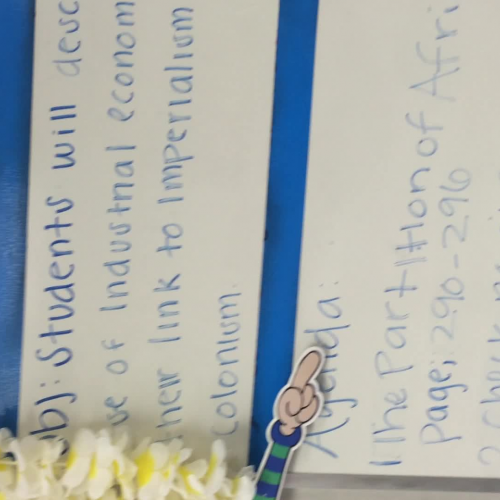 bj: Students will desc
ve of Industrial econom
heir link to Imperialism
colonism.
Agenda:
1 The Partition of Afri
Page; 290-296